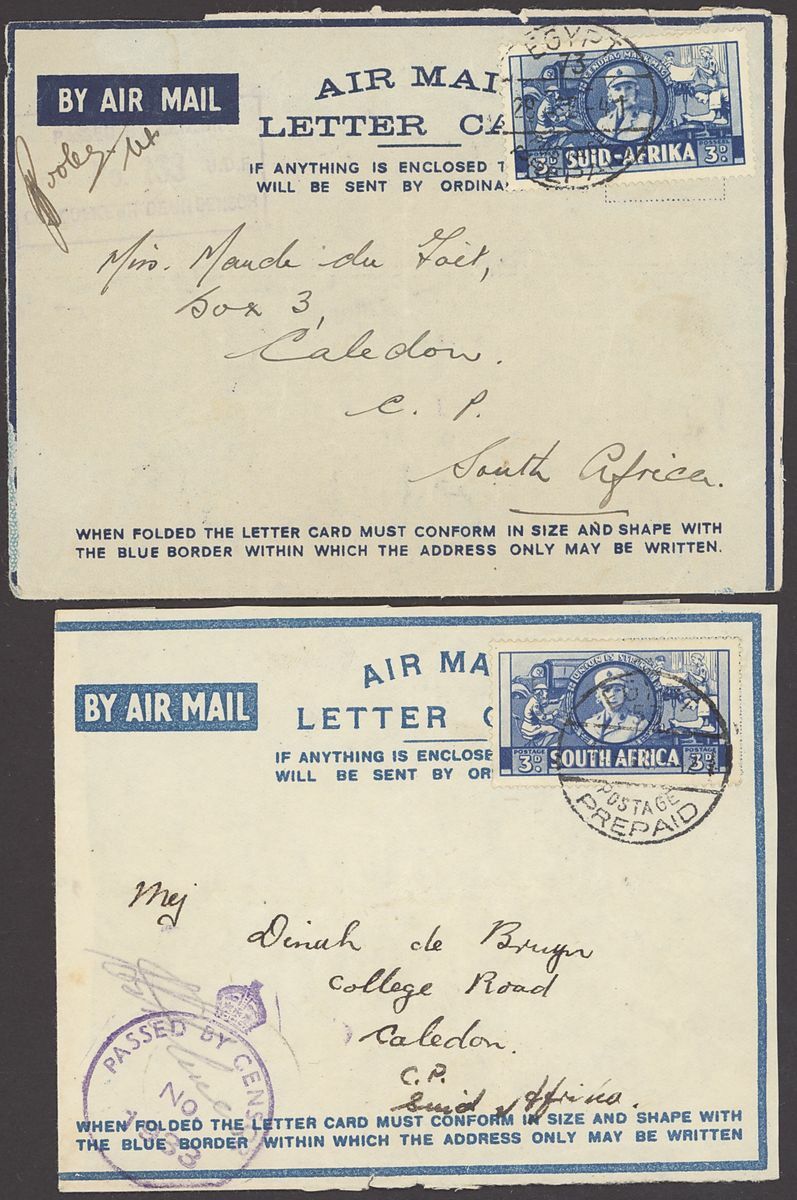 BY AIR MAIL
AIR MAI
LETTER CA
IF ANYTHING IS ENCLOSED T
WILL BE SENT BY ORDINA
EGYPT
73
41
POSTAGE
3D. SUID-AFRIKA 3D.
Miss. Maude du Toit,
Box 3,
Caledon.
C. P.
South Africa.
WHEN FOLDED THE LETTER CARD MUST CONFORM IN SIZE AND SHAPE WITH
THE BLUE BORDER WITHIN WHICH THE ADDRESS ONLY MAY BE WRITTEN.
AIR MA
BY AIR MAIL
LETTER
IF ANYTHING IS ENCLOSE
WILL BE SENT BY OR
POSTAGE POSTAGE
3D. SOUTH AFRICA 3D.
POSTAGE
PREPAID
Mej
Dinah de Bruyn
College Road
Caledon.
C.P.
Suid Afrika.
PASSED BY CENSOR
No.
WHEN FOLDED THE LETTER CARD MUST CONFORM IN SIZE AND SHAPE WITH
THE BLUE BORDER WITHIN WHICH THE ADDRESS ONLY MAY BE WRITTEN